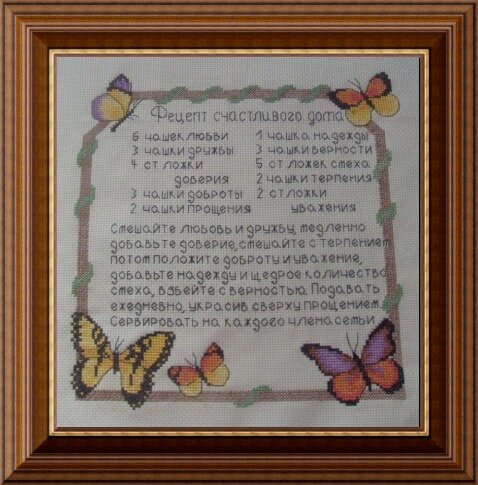 Рецепт счастливого дома
6 чашек любви 1 чашка надежды
3 чашки дружбы 3 чашки верности
4 ст ложки 5 ст ложек смеха
доверия 2 чашки терпения
3 чашки доброты 2 ст ложки
2 чашки прощения уважения
Смешайте любовь и дружбу, медленно
добавьте доверие, смешайте с терпением
потом положите доброту и уважение,
добавьте надежду и щедрое количество
смеха, взбейте с верностью. Подавать
ежедневно, украсив сверху прощением.
Сервировать на каждого члена семьи.